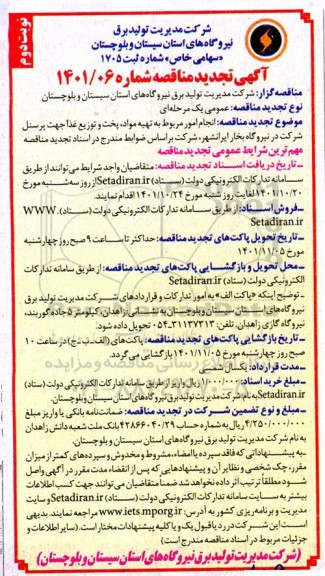 نوبت دوم
شرکت مدیریت تولید برق
نیروگاه‌های استان سیستان و بلوچستان
«سهامی خاص» شماره ثبت ۱۷۰۵
آگهی تجدید مناقصه شماره ۱۴۰۱/۰۶
مناقصه گزار: شرکت مدیریت تولید برق نیروگاه‌های استان سیستان و بلوچستان
نوع تجدید مناقصه: عمومی یک مرحله‌ای
موضوع تجدید مناقصه: انجام امور مربوط به تهیه مواد، پخت و توزیع غذا جهت پرسنل
شرکت در نیروگاه بخار ایرانشهر، شرکت براساس ضوابط مندرج در اسناد تجدید مناقصه
مهم ترین شرایط عمومی تجدید مناقصه
ـ تاریخ دریافت اسناد تجدید مناقصه: متقاضیان واجد شرایط می‌توانند از طریق
سامانه تدارکات الکترونیکی دولت (ستاد) Setadiran.ir از روز سه‌شنبه مورخ
۱۴۰۱/۱۰/۲۰ لغایت روز شنبه مورخ ۱۴۰۱/۱۰/۲۴ اقدام نمایند.
ـ فروش اسناد: از طریق سامانه تدارکات الکترونیکی دولت (ستاد). WWW.
Setadiran.ir
ـ تاریخ تحویل پاکت‌های تجدید مناقصه: حداکثر تا ساعت ۹ صبح روز چهارشنبه
مورخ ۱۴۰۱/۱۱/۰۵
ـ محل تحویل و بازگشایی پاکت‌های تجدید مناقصه: از طریق سامانه تدارکات
الکترونیکی دولت (ستاد) Setadiran.ir
ـ توضیح اینکه «پاکت الف» به امور تدارکات و قراردادهای شرکت مدیریت تولید برق
نیروگاه‌های استان سیستان و بلوچستان به نشانی: زاهدان، کیلومتر ۵ جاده گوربند،
نیروگاه گازی زاهدان. تلفن: ۳۱۱۳۷۳۱۳-۰۵۴ تحویل داده شود.
ـ تاریخ بازگشایی پاکت‌های تجدید مناقصه: پاکت‌های (الف-ب-ج) در ساعت ۱۰
صبح روز چهارشنبه مورخ ۱۴۰۱/۱۱/۰۵ بازگشایی می‌گردد.
ـ مدت قرارداد: یکسال شمسی
ـ مبلغ خرید اسناد: ۱/۰۰۰/۰۰۰ ریال واریز از طریق سامانه تدارکات الکترونیکی دولت (ستاد)
Setadiran.ir به نام شرکت مدیریت تولید برق نیروگاه‌های استان سیستان و بلوچستان.
ـ مبلغ و نوع تضمین شرکت در تجدید مناقصه: ضمانت‌نامه بانکی یا واریز مبلغ
۴/۲۵۰/۰۰۰/۰۰۰ ریال به شماره حساب ۴۲۸۶۶۰۴۰/۲۹ بانک ملت شعبه دانش زاهدان
به نام شرکت مدیریت تولید برق نیروگاه‌های استان سیستان و بلوچستان.
ـ به پیشنهاداتی که فاقد سپرده یا امضاء، مشروط و مخدوش و سپرده‌های کمتر از میزان
مقرر، چک شخصی و نظایر آن و پیشنهادهایی که پس از انقضاء مدت مقرر در آگهی واصل
شود مطلقا ترتیب اثر داده نخواهد شد ضمنا متقاضیان می‌توانند جهت کسب اطلاعات
بیشتر به سایت سامانه تدارکات الکترونیکی دولت (ستاد) Setadiran.ir و سایت
مدیریت و برنامه‌ریزی کشور به آدرس: www.iets.mporg.ir مراجعه نمایند. بدیهی
است این شرکت در رد یا قبول یک یا کلیه پیشنهادات مختار است. (سایر اطلاعات و
جزئیات مربوط در اسناد مناقصه مندرج است)
(شرکت مدیریت تولید برق نیروگاه‌های استان سیستان و بلوچستان)